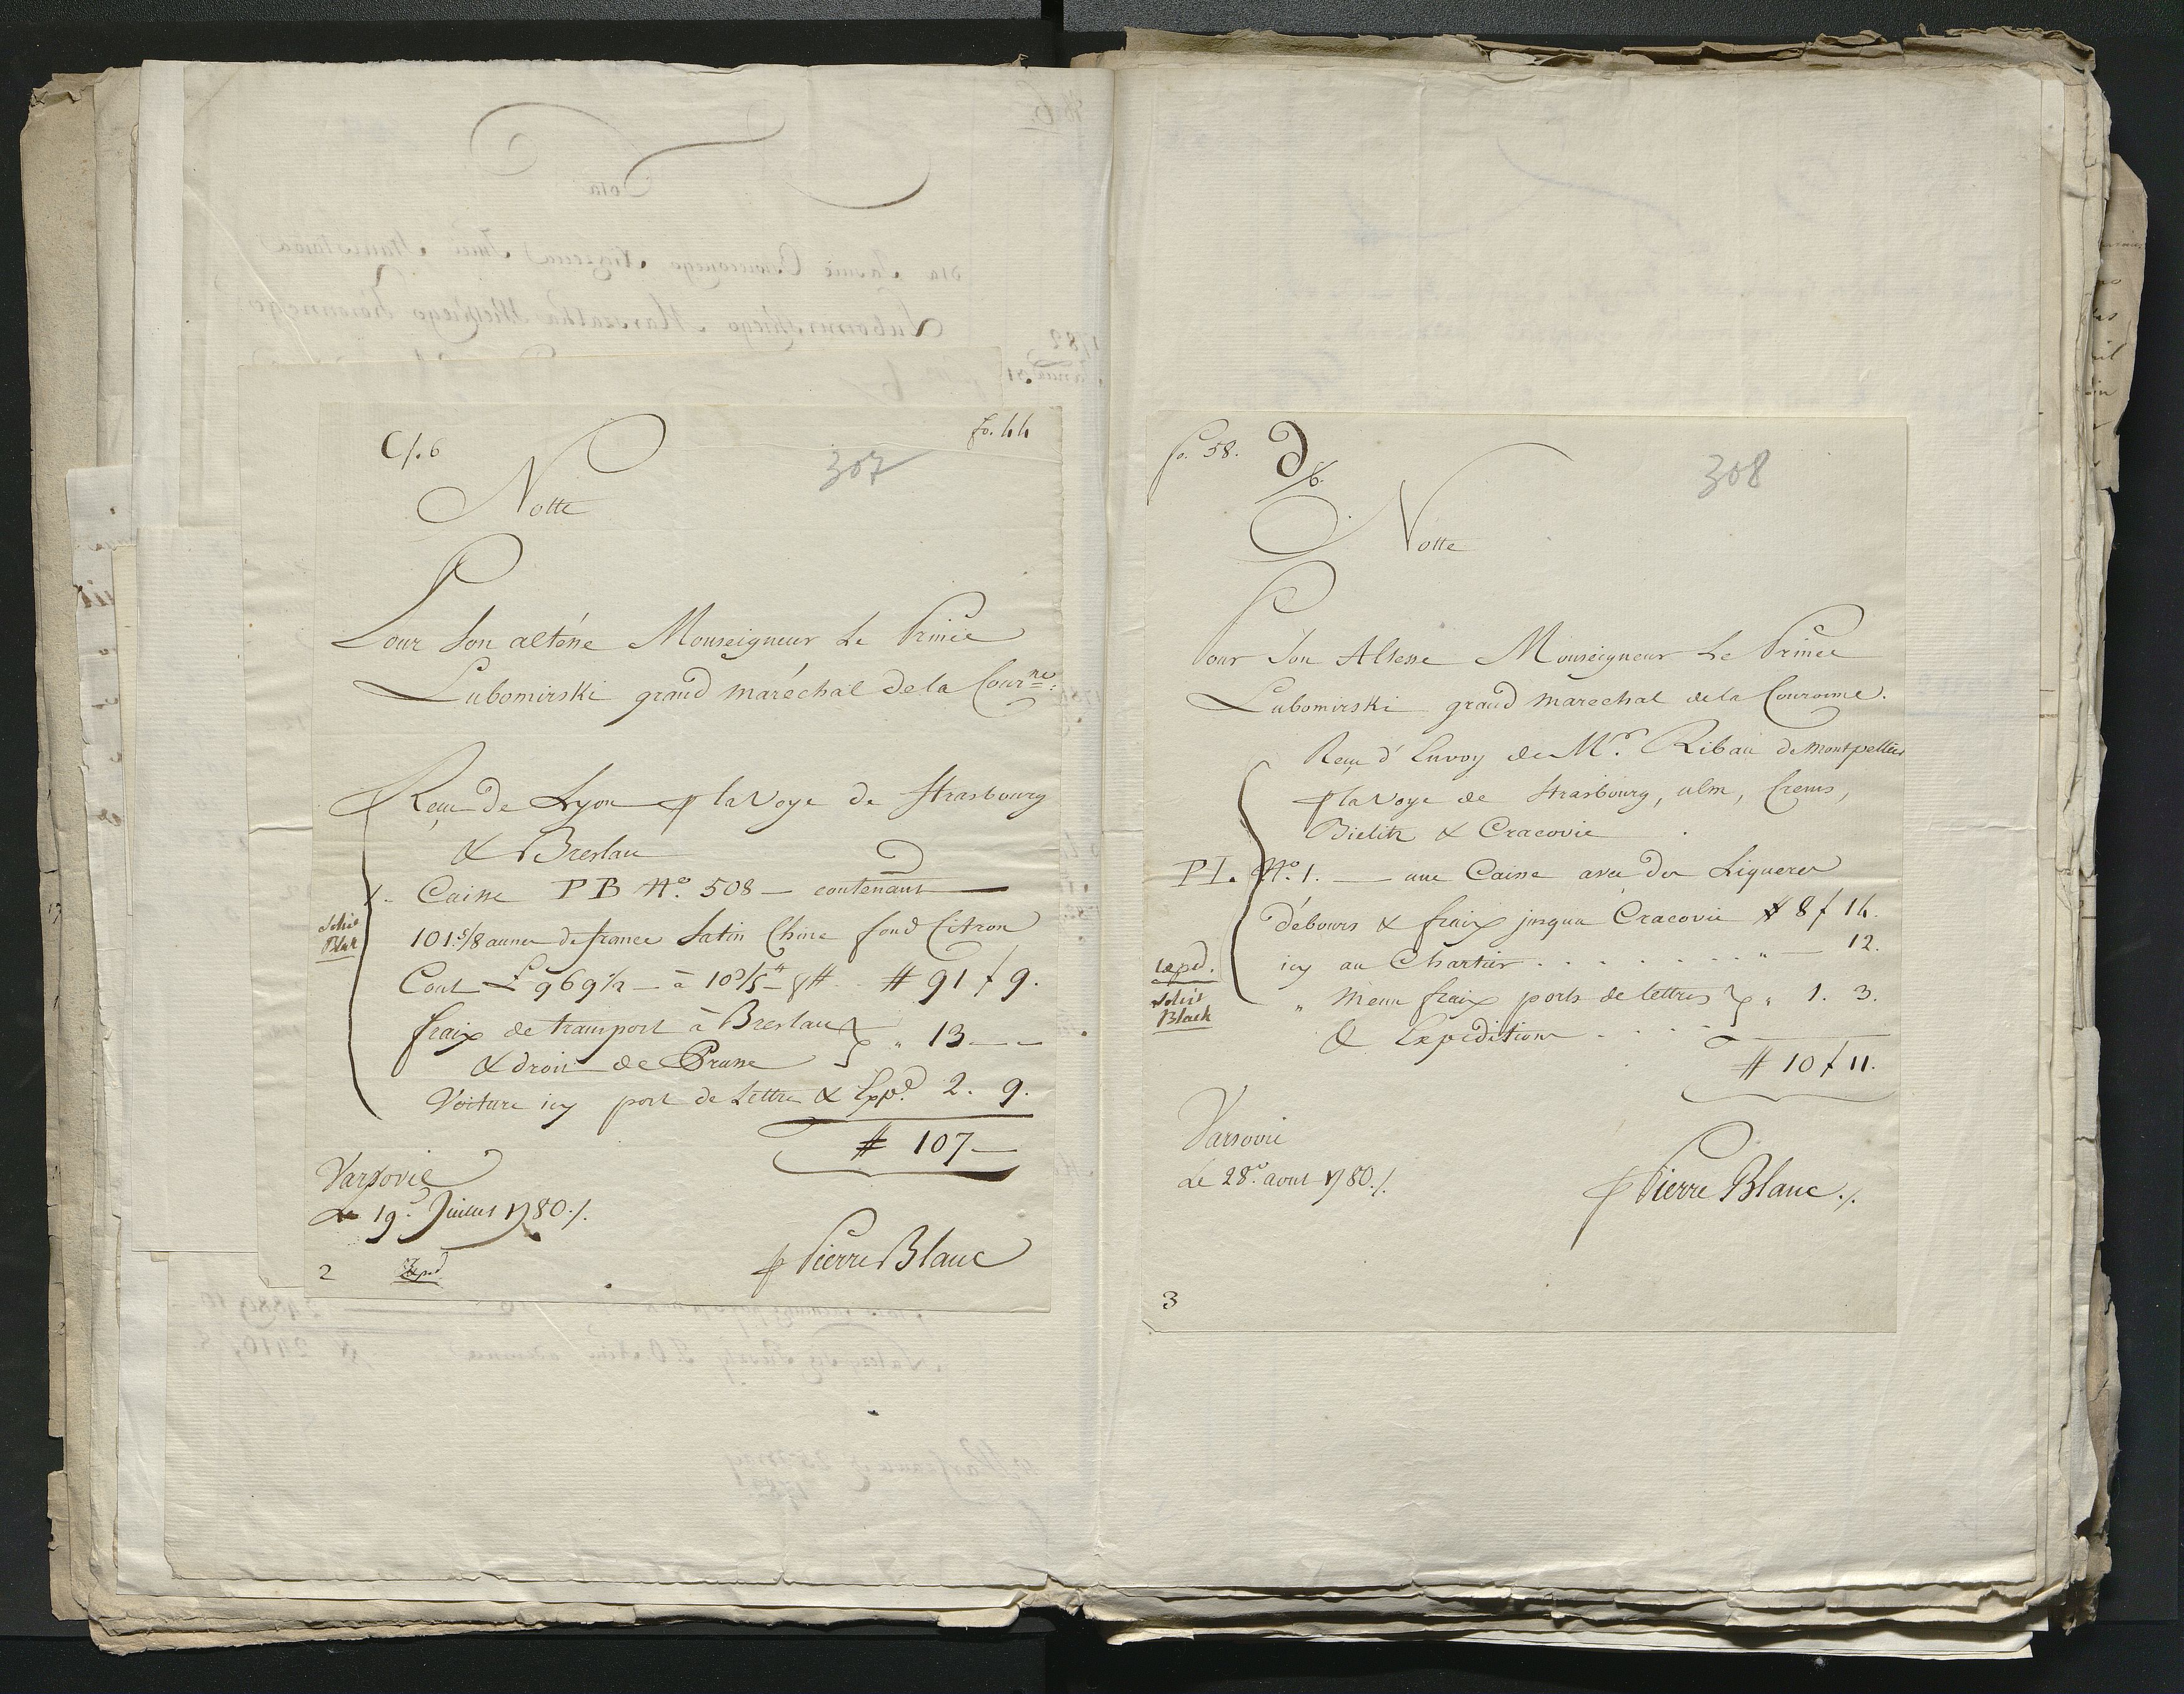 C/.6
fo. 44
307
Notte
Pour Son altésse Monseigneur Le Prince
Lubomirski grand maréchal de la Cour.ne
Reçu de Lyon p la Voye de Strasbourg
& Breslau
1. Caisse P B N.º 508 — contenant
101 5/8 aunes de france Satin Chine fond Citron
Cout L 969 1/2 — à
# 91 f 9.
fraix de transport à Breslau } " 13 — —
& droit de Prusse
Voiture icy port de Lettre & Exp.d 2. 9.
# 107 —
Varsovie
Le 19.e Juillet 1780 ./.
p Pierre Blanc
2
Exped
fo. 58.
D/6.
308
Notte
Pour Son Altesse Monseigneur Le Prince
Lubomirski grand marechal de la Couronne.
Reçu d'Envoy de M.r Riban de Montpellier
p la Voye de Strasbourg, ulm, Crems,
Bielitz & Cracovie
P I. N.º 1. — une Caisse avec des Liqueres
débours & fraix jusqua Cracovie # 8 f 14.
icy au Chartier . . . . . . . . " — 12.
" Menu fraix ports de lettres } " 1. 3.
& Expeditions . . . .
# 10 f 11.
exped.
Varsovie
Le 28.e aout 1780 ./.
p Pierre Blanc ./.
3